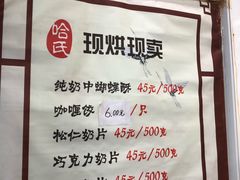 哈氏
现烘现卖
纯奶中蝴蝶酥 45元/500克
咖喱饺 6.00元/只
松仁奶片 45元/500克
巧克力奶片 45元/500克